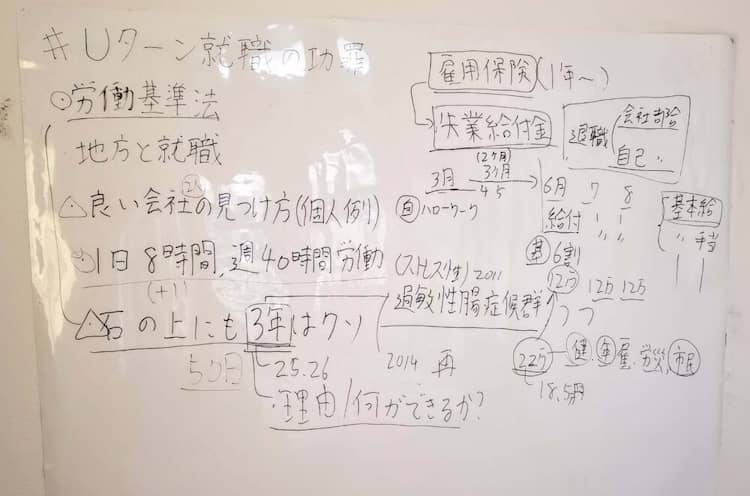 #Uターン就職の功罪
○労働基準法
地方と就職
△良い会社の見つけ方(個人例)
1日8時間,週40時間労働
(+1)
△石の上にも3年はクソ
50日
25.26
・理由/何ができるか?
雇用保険(1年〜)
失業給付金
退職
会社都合
自己〃
(2ヶ月)
3月
3ヶ月
4 5
6月 7 8
自 ハローワーク
給付 〃 〃
基本給
〃 手当
基 6割
12万 12万 12万
(ストレス性) 2011
過敏性腸症候群
2014 再
22万 健.年.雇.労災.市民
18.5万